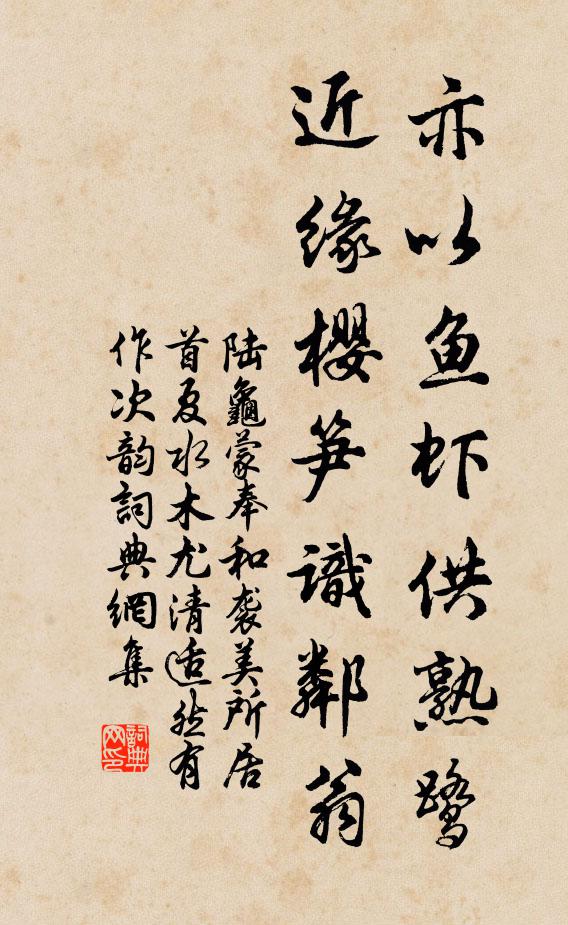 亦以鱼虾供熟鹭
近缘樱笋識鄰翁
陆龜蒙奉和袭美所居
首夏水木尤清适然有
作次韵詞典網集
詞典网印